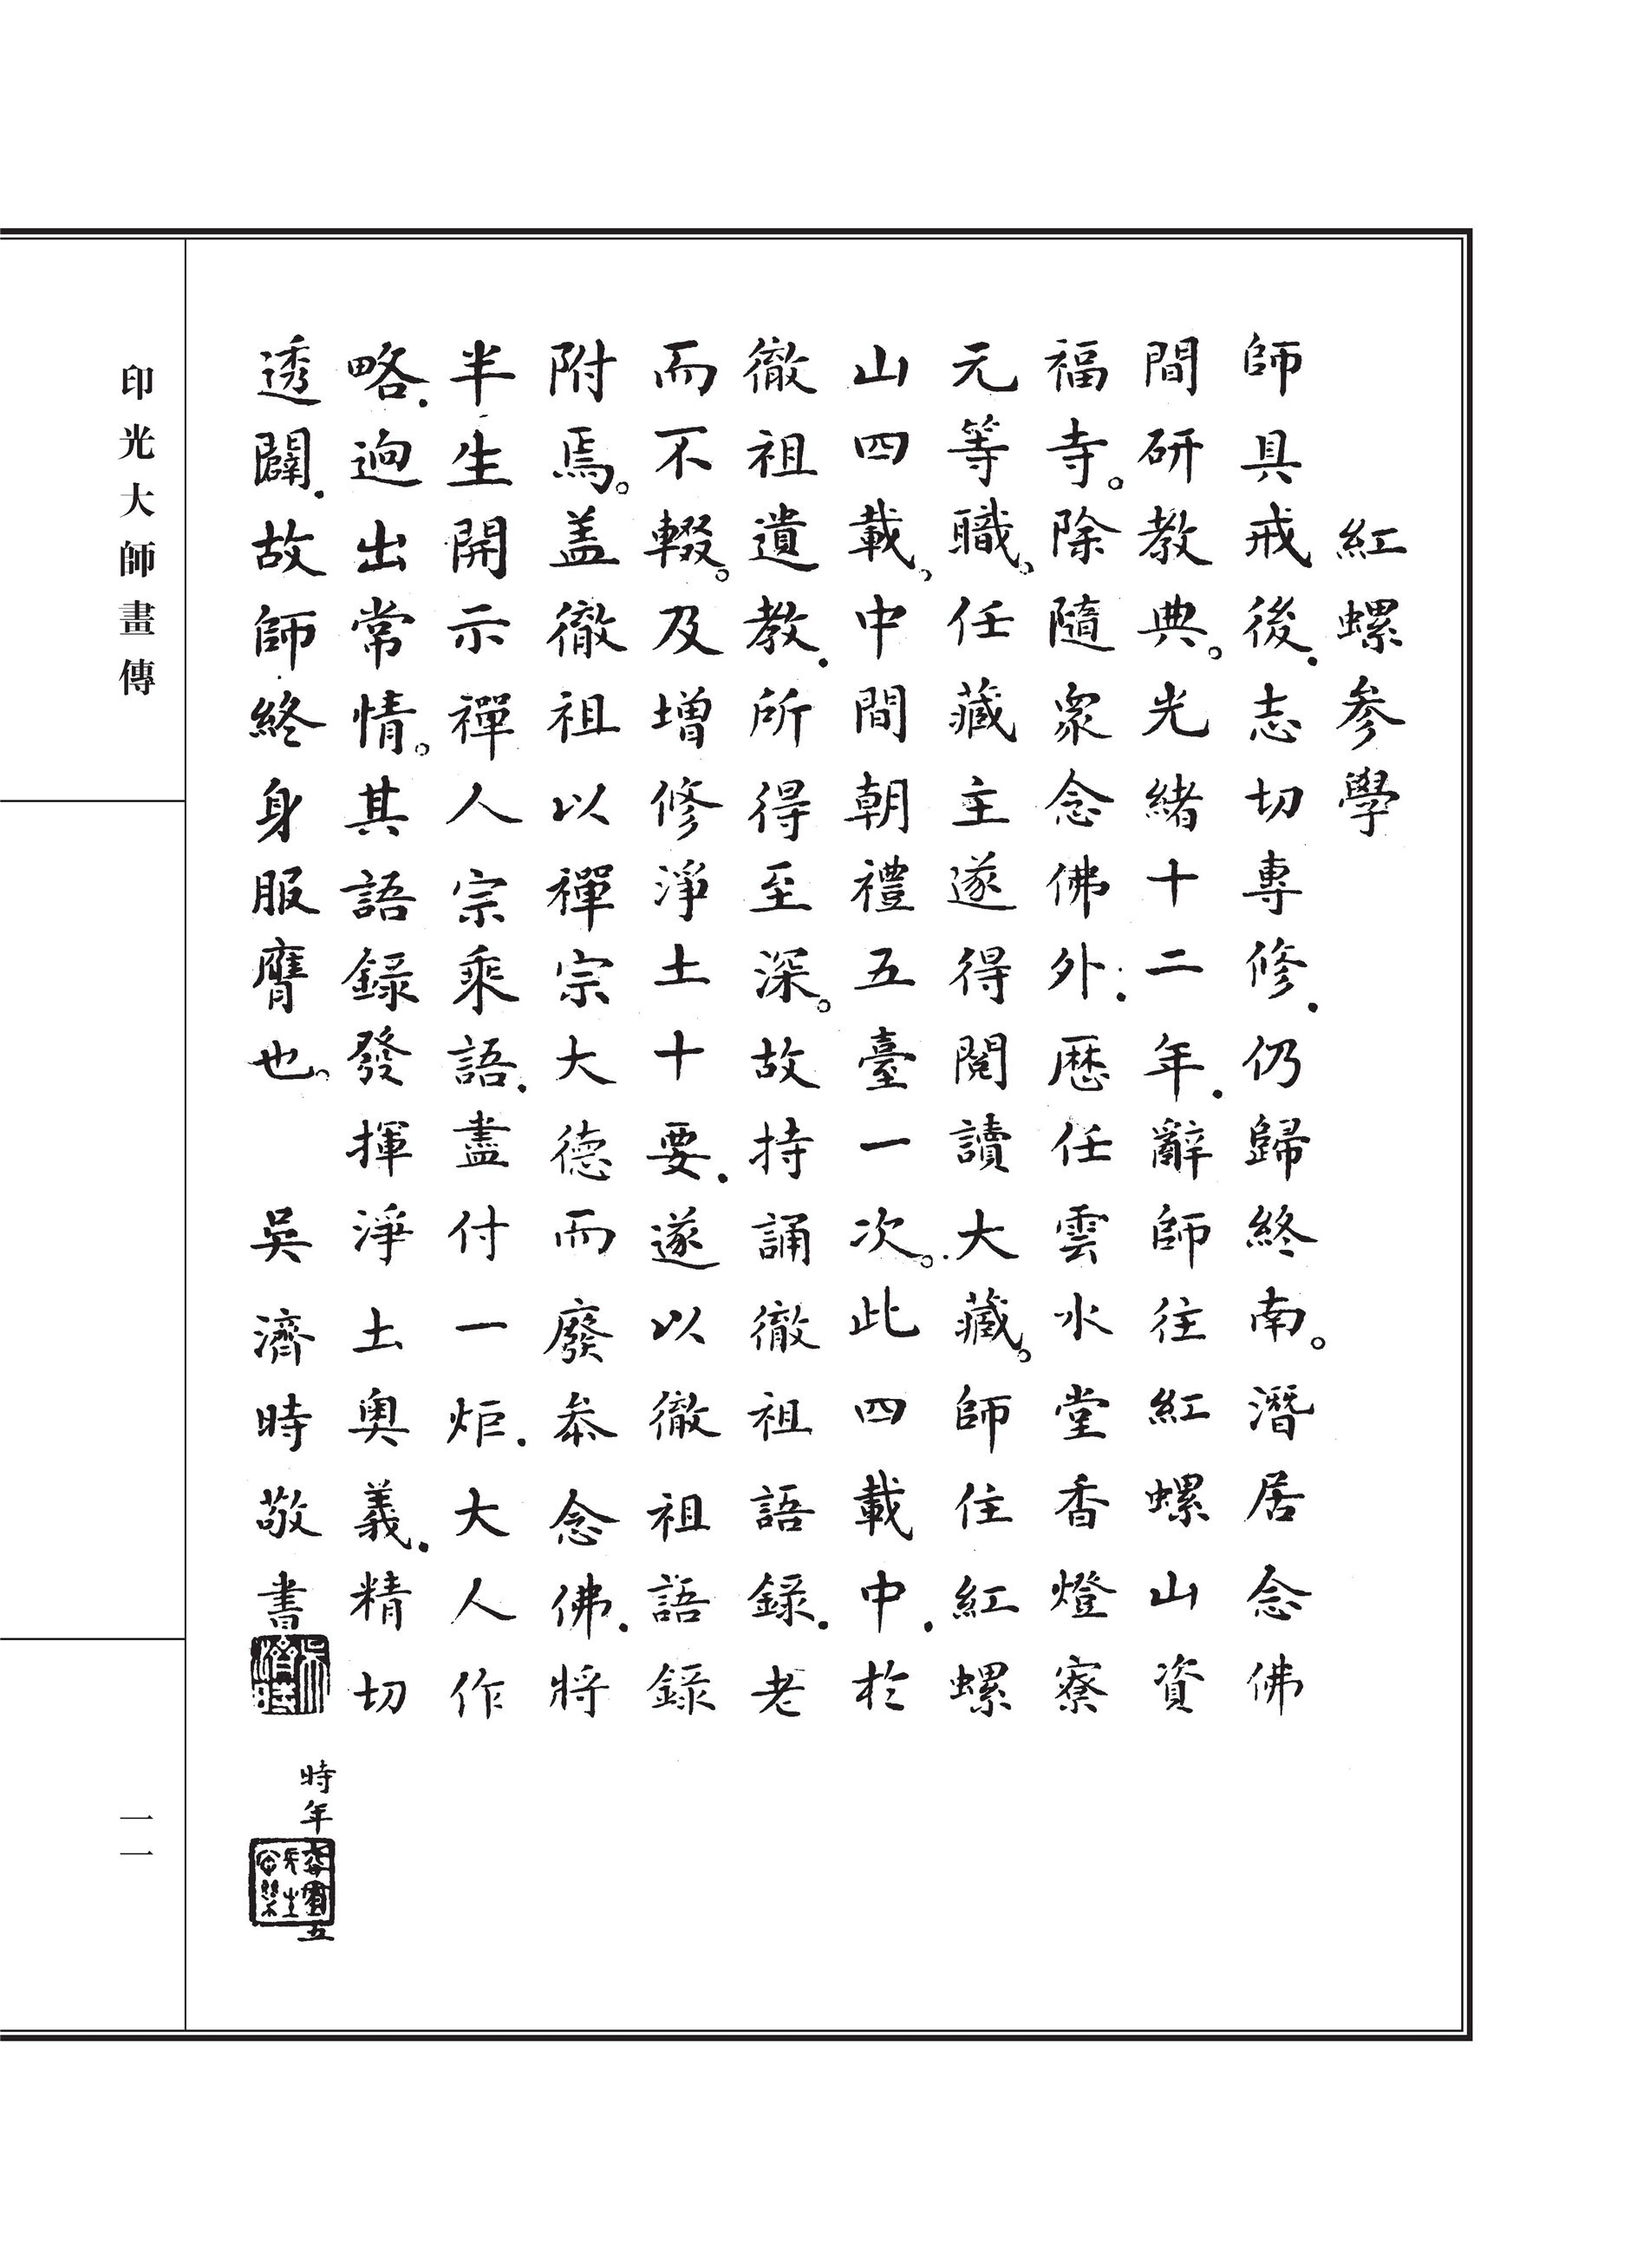 紅螺参學
師具戒後．志切專修．仍歸終南。潛居念佛
間研教典。光緒十二年．辭師往紅螺山資
福寺。除隨衆念佛外．歴任雲水堂香燈寮
元等職。任藏主遂得閱讀大藏。師住紅螺
山四載，中間朝禮五臺一次。此四載中．於
徹祖遺教．所得至深。故持誦徹祖語錄．老
而不輟。及增修淨土十要．遂以徹祖語錄
附焉。盖徹祖以禪宗大德而廢叅念佛．將
半生開示禪人宗乘語．盡付一炬．大人作
略．逈出常情。其語錄發揮淨土奥義．精切
透闢．故師終身服膺也。　吳濟時敬書
時年
五
印光大師畫傳
一一